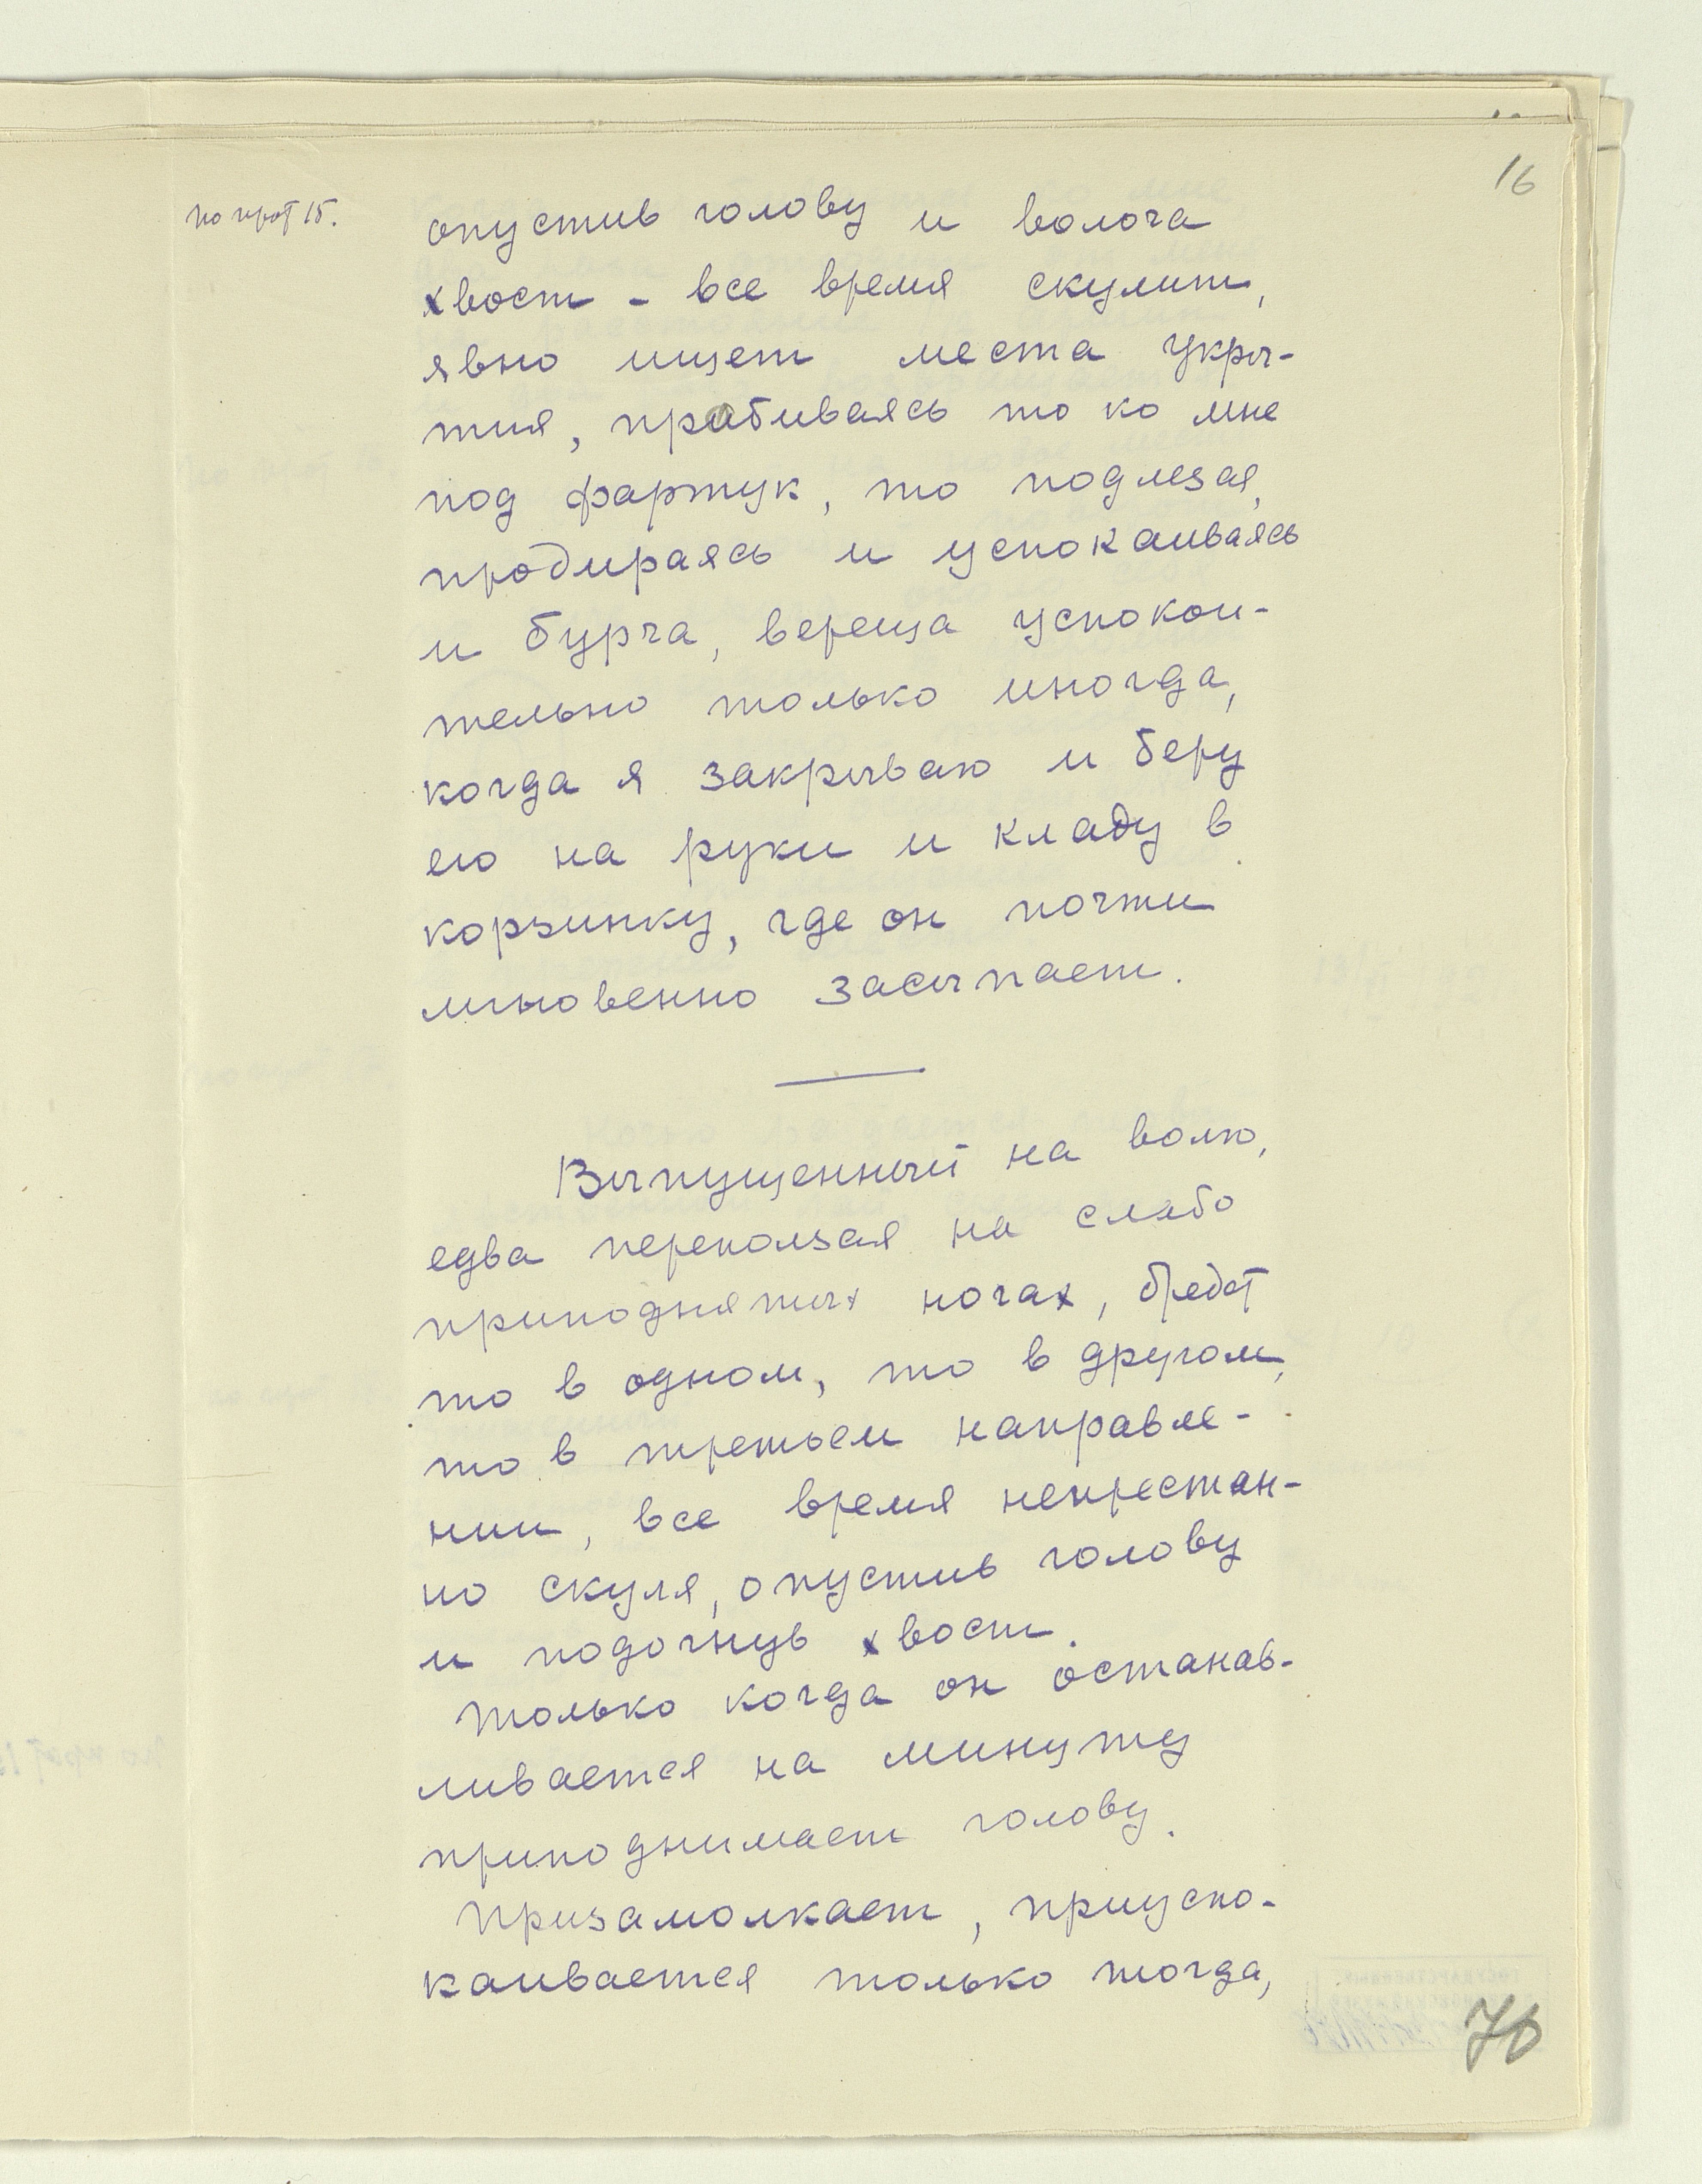 16
по прот 15.
опустив голову и волоча
хвост - все время скулит,
явно ищет места укры-
тия, пробиваясь то ко мне
под фартук, то подлезая,
продираясь и успокаиваясь
и бурча, вереща успокои-
тельно только иногда,
когда я закрываю и беру
его на руки и кладу в
корзинку, где он почти
мгновенно засыпает.
Выпущенный на волю,
едва переползая на слабо
приподнятых ногах, бредет
то в одном, то в другом,
то в третьем направле-
нии, все время непрестан-
но скуля, опустив голову
и подогнув хвост.
Только когда он останав-
ливается на минуту
приподнимает голову.
Призамолкает, приуспо-
каивается только тогда,